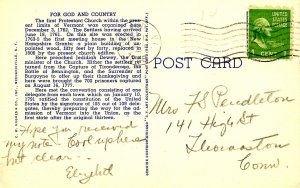 FOR GOD AND COUNTRY
The first Protestant Church within the present limits of Vermont was organized here
December 3, 1762. The Settlers having arrived
June 18, 1761. On this site was erected in
1763-5 the first meeting house in the New
Hampshire Grants; a plain building of unpainted wood, fifty feet by forty, replaced in
1806 by the present church edifice.
Here preached Jedidiah Dewey, the first
minister of the Church. Hither the settlers returned from the Capture of Ticonderoga, the
Battle of Bennington, and the Surrender of
Burgoyne to offer up their thanksgiving and
here were brought the 700 prisoners captured
on August 16, 1777.
Here met the convention consisting of one
delegate from each town which on January 10,
1791 ratified the constitution of the United
States by the signature of 105 out of 109 delegates, thereby preparing the way for the admission of Vermont into the Union, as the
first state after the original thirteen.
Hope Jim received
my note
but clear.
Elizabeth
POST CARD
Mrs. H S Pendleton
141 High St
Conn.